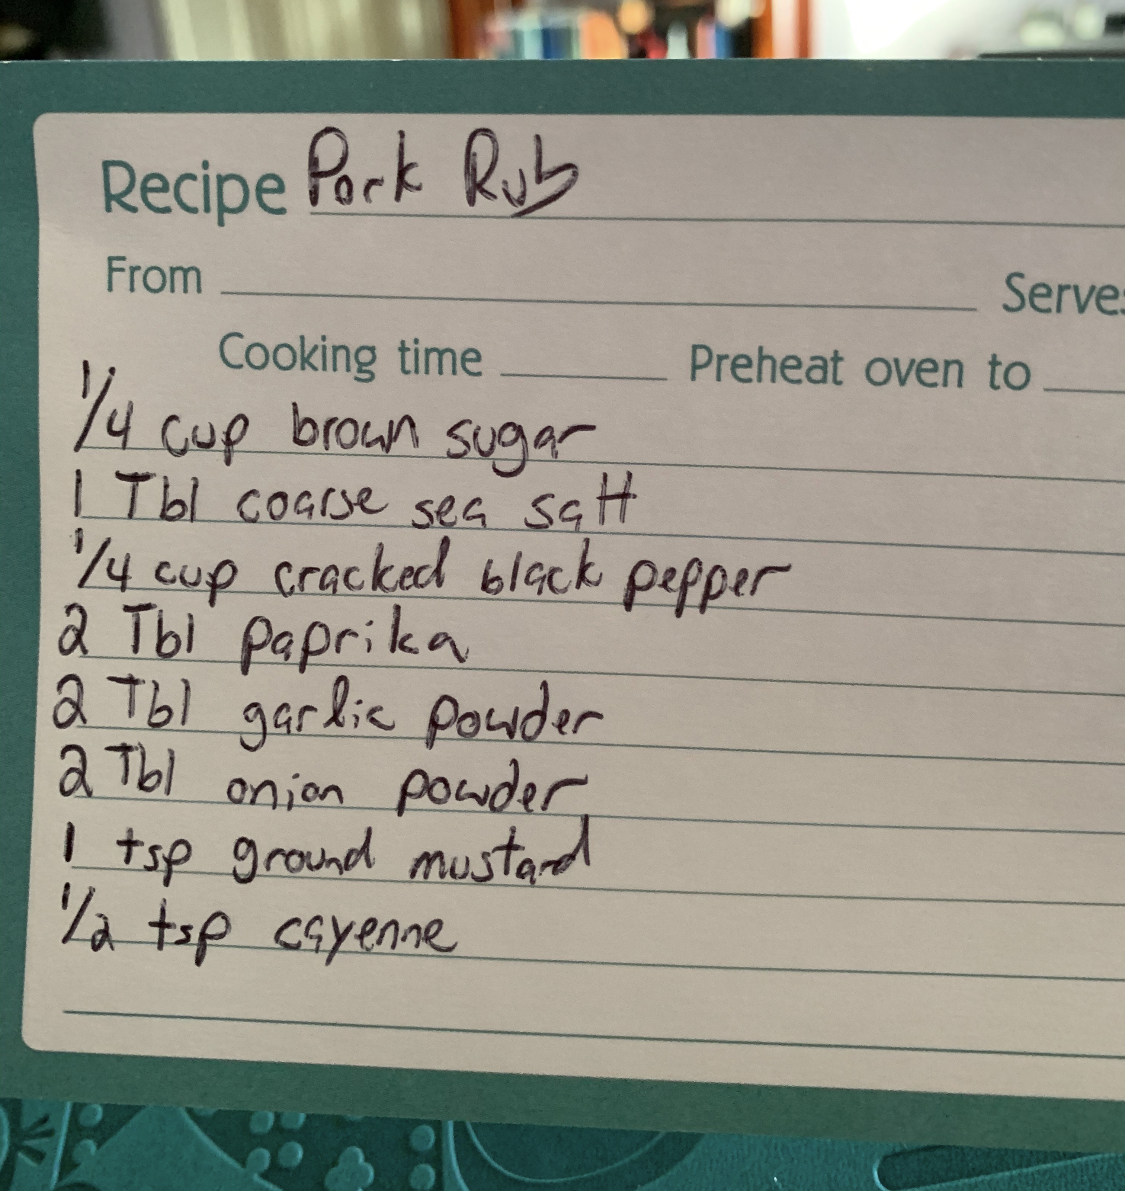 Recipe Pork Rub
From Serves
Cooking time Preheat oven to
1/4 cup brown sugar
1 Tbl coarse sea salt
1/4 cup cracked black pepper
2 Tbl paprika
2 Tbl garlic powder
2 Tbl onion powder
1 tsp ground mustard
1/2 tsp cayenne